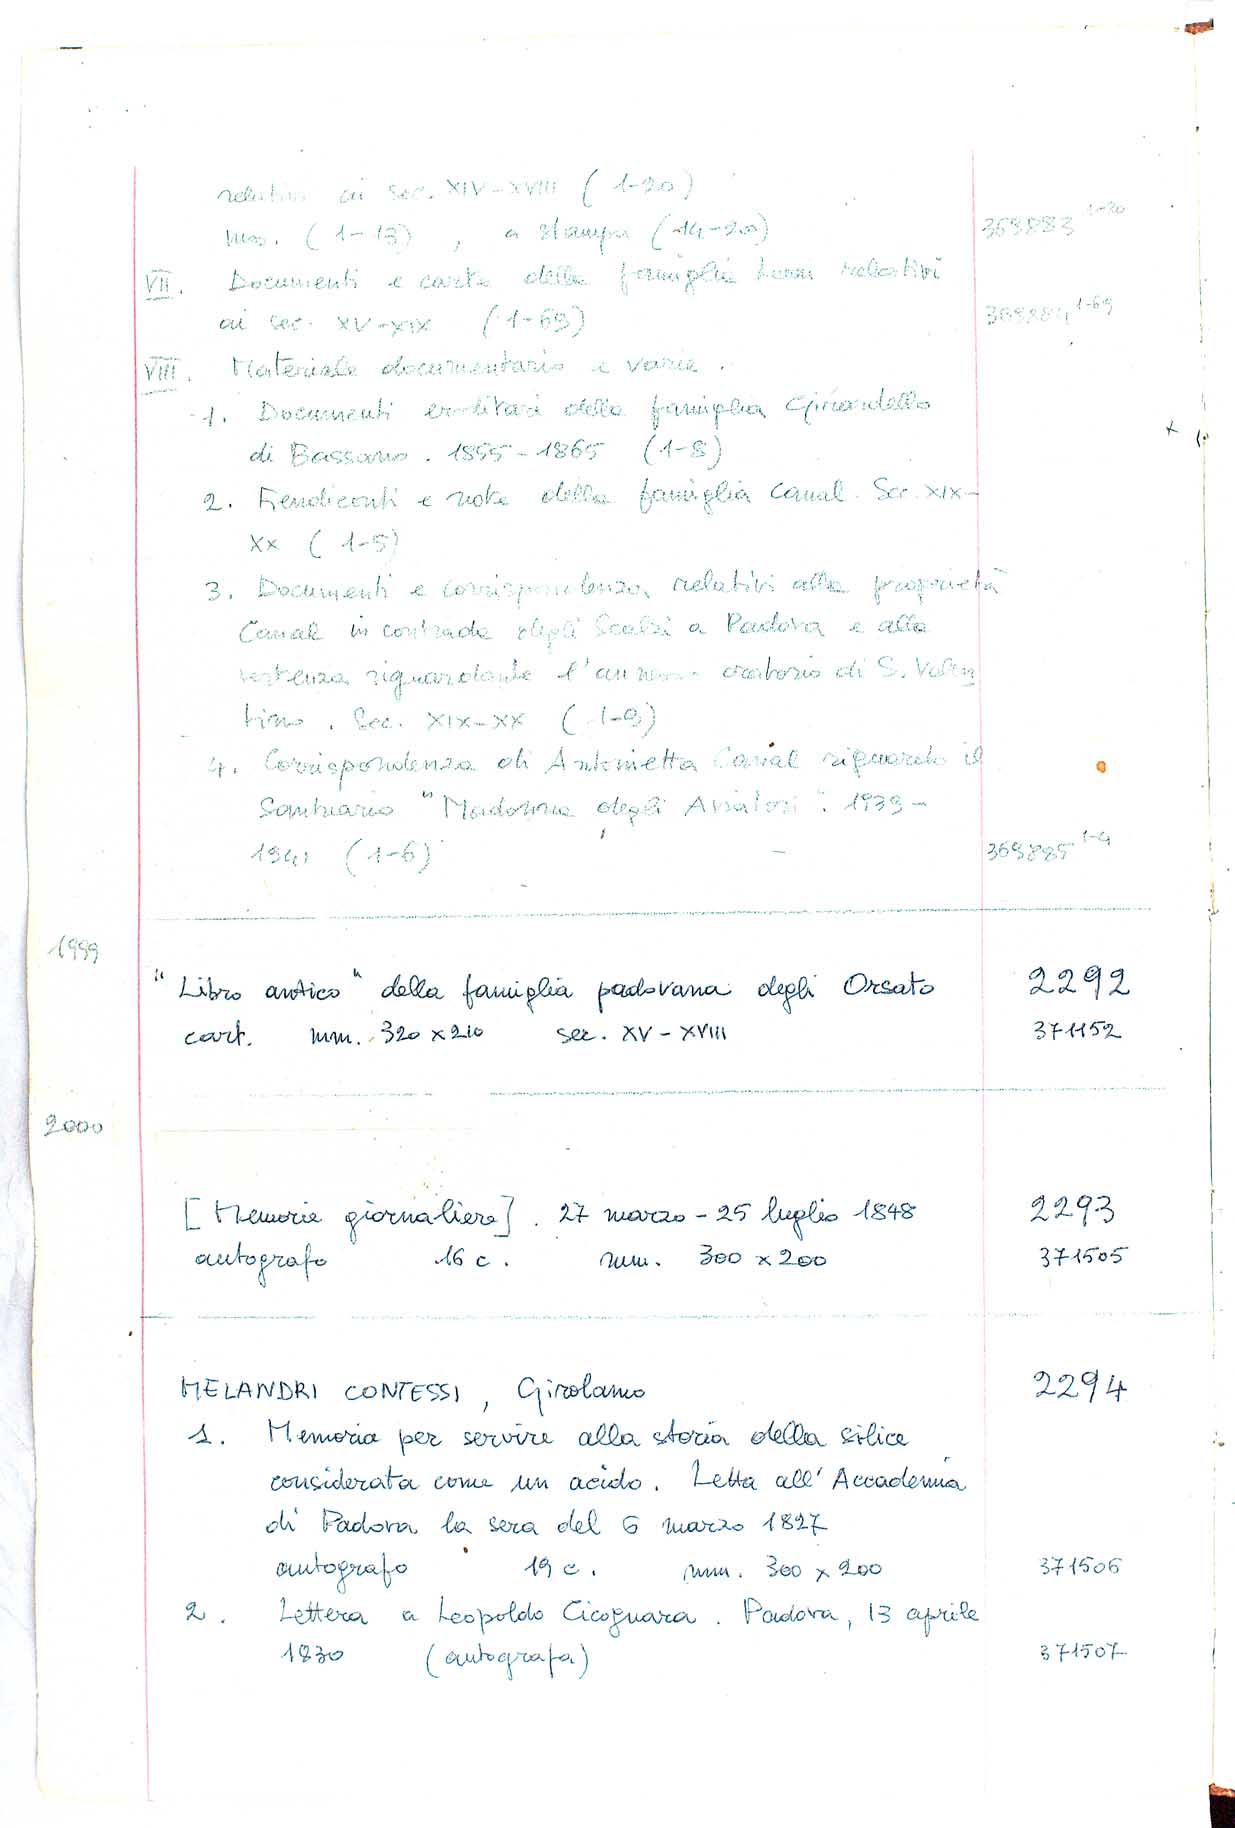 relativi ai sec. XIV-XVIII (1-20)
ms. (1-13), a stampa (14-20) 369883 1-20
VII. Documenti e carte della famiglia relativi
ai sec. XV-XIX (1-69) 369884 1-69
VIII. Materiale documentario e varie.
1. Documenti ereditari della famiglia Girardello
di Bassano. 1855-1865 (1-8)
2. Rendiconti e note della famiglia Canal. Sec. XIX-
XX (1-5)
3. Documenti e corrispondenza relativi alla proprietà
Canal in contrada degli Scalzi a Padova e alla
vertenza riguardante l'annesso oratorio di S. Valen
tino. Sec. XIX-XX (1-9)
4. Corrispondenza di Antonietta Canal riguardo il
Santuario "Madonna degli Aviatori". 1939-
1941 (1-6) 369885 1-4
1999
"Libro antico" della famiglia padovana degli Orsato 2292
cart. mm. 320 x 210 sec. XV-XVIII 371152
2000
[Memorie giornaliere]. 27 marzo - 25 luglio 1848 2293
autografo 16 c. mm. 300 x 200 371505
MELANDRI CONTESSI, Girolamo 2294
1. Memoria per servire alla storia della silice
considerata come un acido. Letta all'Accademia
di Padova la sera del 6 marzo 1827
autografo 19 c. mm. 300 x 200 371506
2. Lettera a Leopoldo Cicognara. Padova, 13 aprile
1830 (autografa) 371507